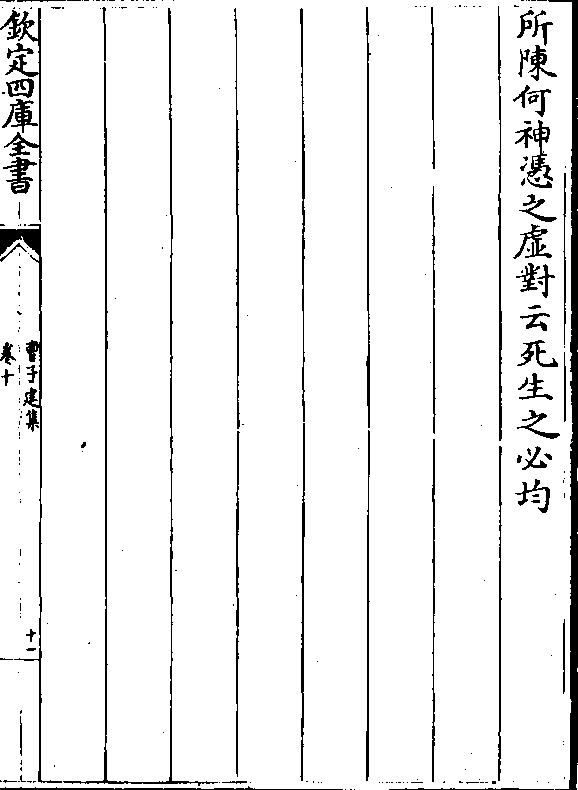 所陳何神憑之虛對云死生之必均
欽定四庫全書
曹子建集
卷十
十一